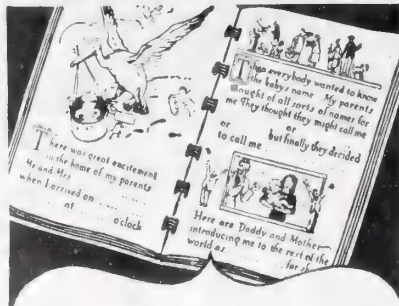 There was great excitement
in the home of my parents
Mr and Mrs ..........
when I arrived on ..........
at .......... oclock
Then everybody wanted to know
the babys name. My parents
thought of all sorts of names for
me They thought they might call me
.......... or ..........
or .......... but finally they decided
to call me ..........
Here are Daddy and Mother
introducing me to the rest of the
world as .......... for sh